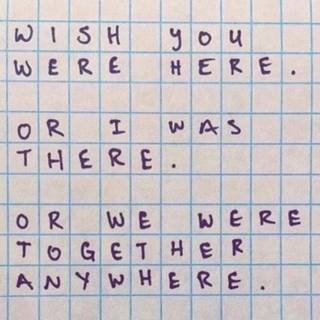 WISH YOU
WERE HERE.
OR I WAS
THERE.
OR WE WERE
TOGETHER
ANYWHERE.